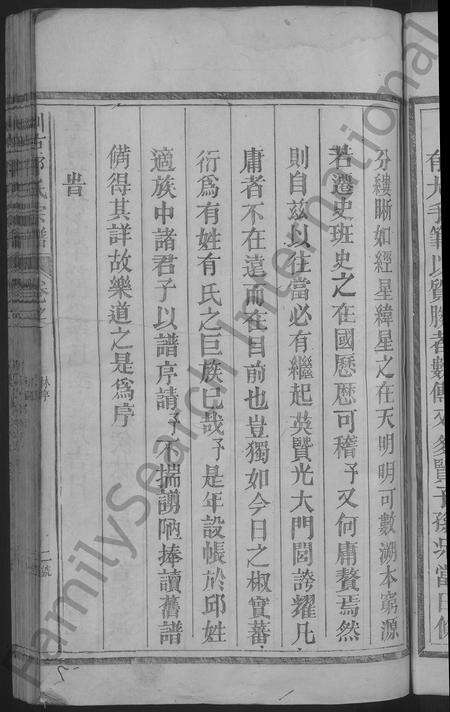 有大手筆以質勝者數傳又多賢子孫
分縷晰如經星緯星之在天明明可數溯本窮源
若遷史班史之在國歷歷可稽予又何庸贅焉然
則自茲以往當必有繼起英賢光大門閭誇耀凡
庸者不在遠而在目前也豈獨如今日之椒實蕃
衍為有姓有氏之巨族已哉予是年設帳於邱姓
適族中諸君子以譜序請予不揣譾陋捧讀舊譜
備得其詳故樂道之是為序
旹
氏宗譜
FamilySearch International